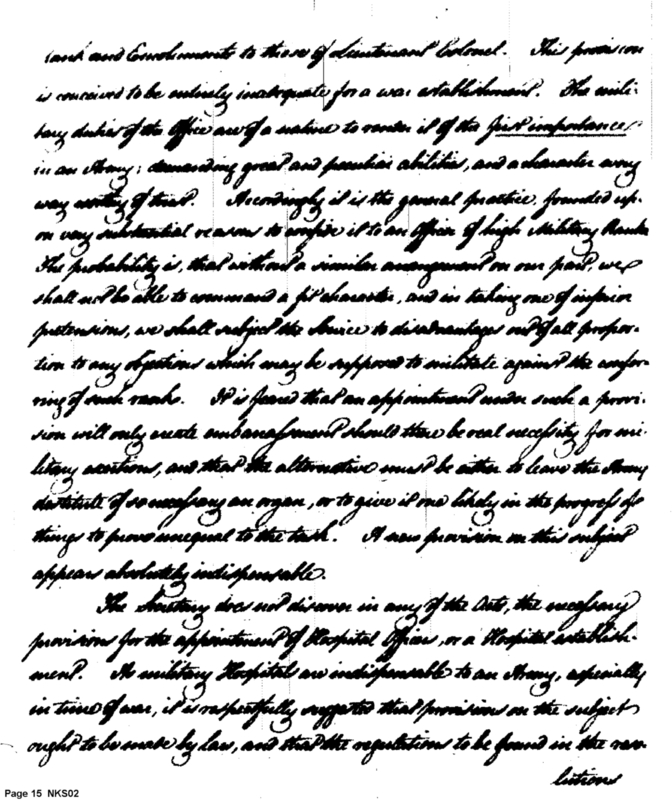 rank and Emoluments to those of Lieutenant Colonel. This provision
is conceived to be entirely inadequate for a war establishment. The mili-
tary duties of the Office are of a nature to render it of the first importance
in an Army; demanding great and peculiar abilities, and a character every
way worthy of trust. Accordingly it is the general practice, founded up-
on very substantial reasons to confide it to an Officer of high Military Rank
The probability is, that without a similar arrangement on our part, we
shall not be able to command a fit character, and in taking one of inferior
pretensions, we shall subject the Service to disadvantages out of all propor-
tion to any objections which may be supposed to militate against the confer-
ring of such rank. It is feared that an appointment under such a provi-
sion will only create embarrassment should there be real necessity for mi-
litary exertions, and that the alternative must be either to leave the Army
destitute of so necessary an organ, or to give it one likely in the progress of
things to prove unequal to the task. A new provision on this subject
appears absolutely indispensable.
The Secretary does not discover in any of the Acts, the necessary
provisions for the appointment of Hospital Officers, or a Hospital establish-
ment. As military Hospitals are indispensable to an Army, especially
in time of war, it is respectfully suggested that provisions on the subject
ought to be made by law, and that the regulations to be found in the reso-
lutions
Page 15 NKS02